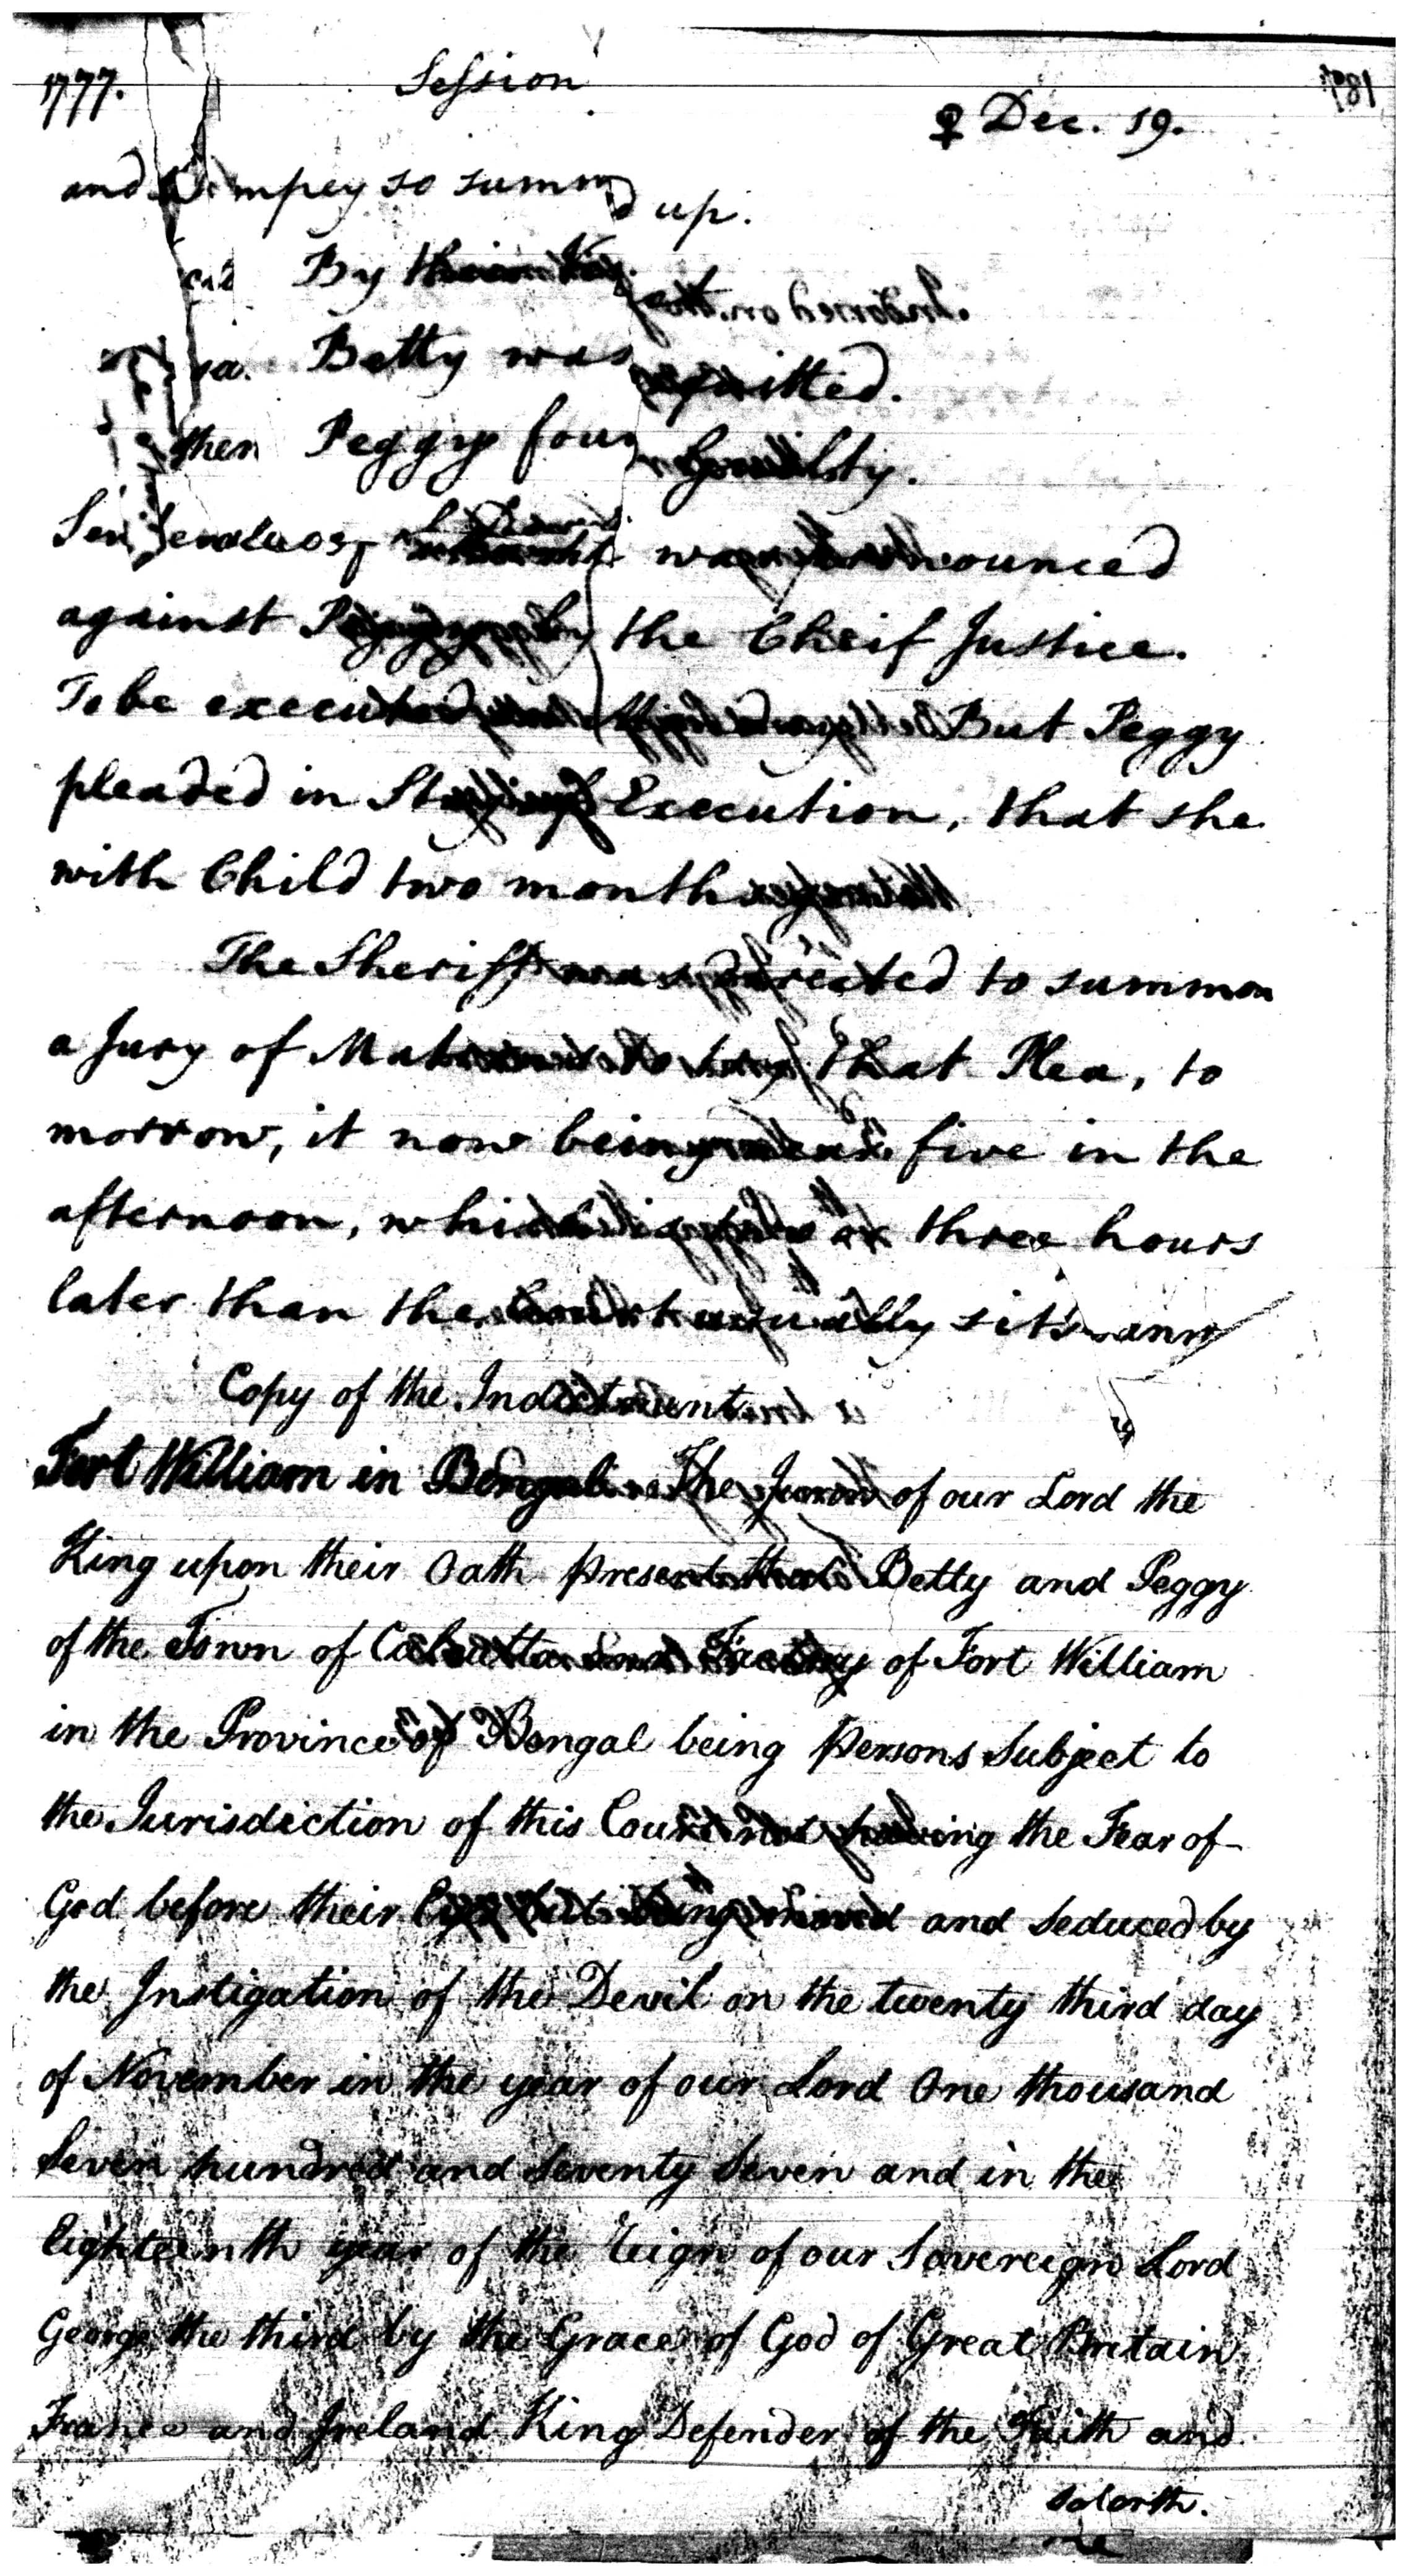 1777. Session
♀ Dec. 19.
and Impey so summ'd up.
By
Betty was acquitted.
then Peggy found Guilty.
Sentence of Death was pronounced
against Peggy by the Cheif Justice.
To be executed But Peggy
pleaded in Stay of Execution, that she
with Child two months
The Sheriff was directed to summon
a Jury of Matrons to try that Plea, to
morrow, it now being near five in the
afternoon, which is three hours
later than the Court usually sits
Copy of the Indictment
Fort William in Bengal The Jurors of our Lord the
King upon their Oath present that Betty and Peggy
of the Town of Calcutta and Factory of Fort William
in the Province of Bengal being persons Subject to
the Jurisdiction of this Court not having the Fear of
God before their Eyes but being moved and seduced by
the Instigation of the Devil on the twenty third day
of November in the year of our Lord One thousand
Seven hundred and Seventy Seven and in the
Eighteenth year of the Reign of our Sovereign Lord
George the third by the Grace of God of Great Britain
France and Ireland King Defender of the Faith and
so forth.